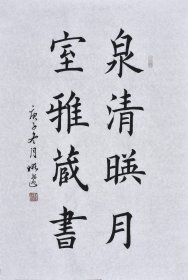 泉清暎月
室雅蔵書
庚子冬月